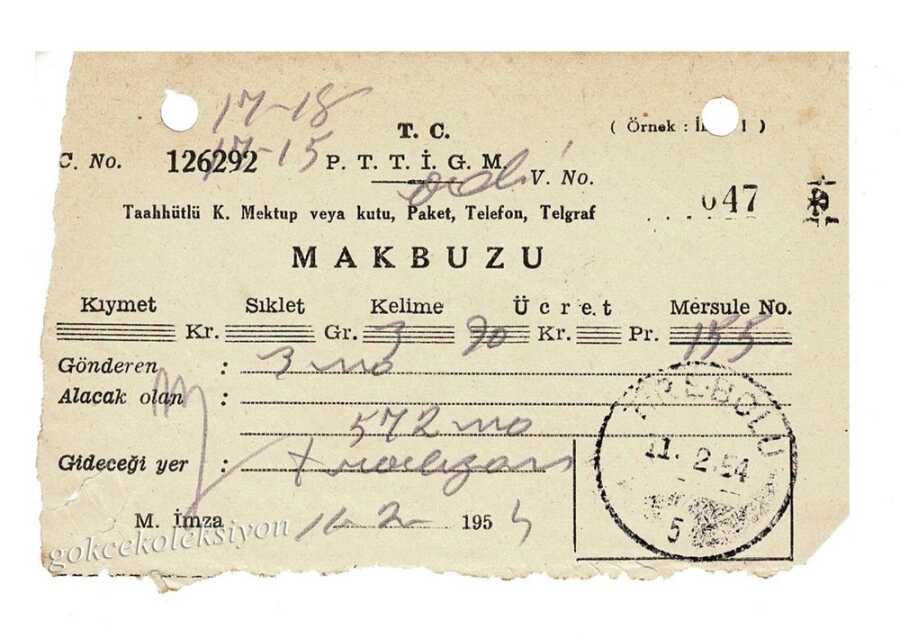 17-18
17-15
T. C.
( Örnek : 1 )
C. No. 126292 P. T. T. İ. G. M.
adi V. No.
047
Taahhütlü K. Mektup veya kutu, Paket, Telefon, Telgraf
MAKBUZU
Kıymet Sıklet Kelime Ücret Mersule No.
Kr. Gr. 3 90 Kr. Pr. 155
Gönderen : 3 no
Alacak olan :
572 no
Gideceği yer : Trabzon
M. İmza 11-2- 1954
TİREBOLU
11. 2. 54
5
gokcekoleksiyon